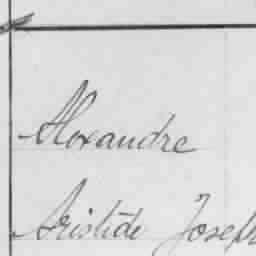 Alexandre
Aristide Joseph